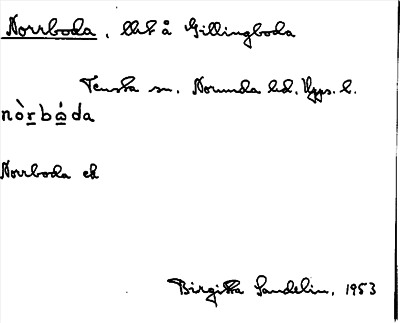 Norrboda, llet å Gillingboda
Tensta sn. Norunda hd. Upps. l.
nòrbǻda
Norrboda ek
Birgitta Sandelin, 1953